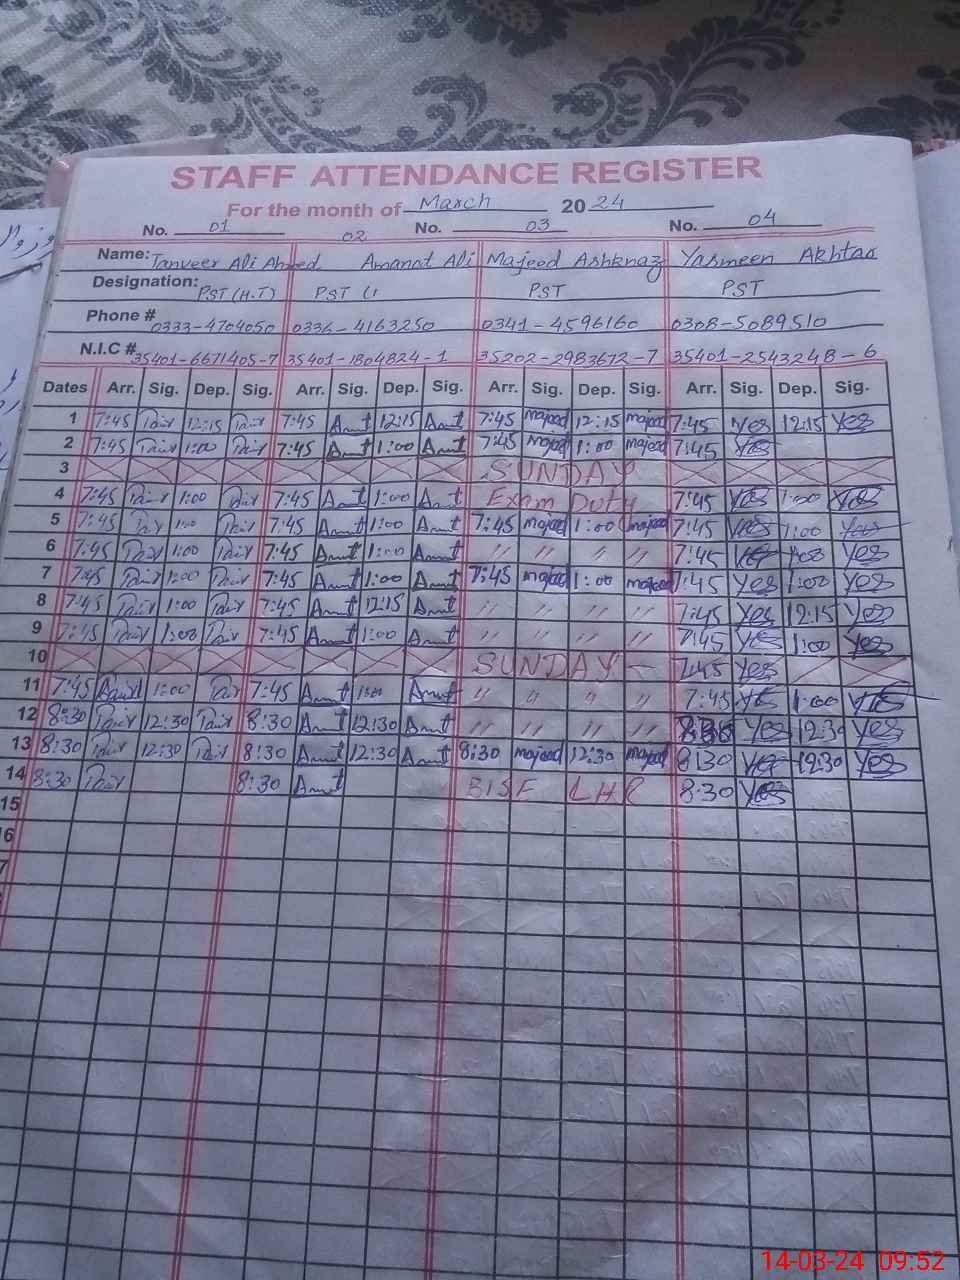 STAFF ATTENDANCE REGISTER
For the month of March 2024
No. 01 02 No. 03 No. 04
Name: Tanveer Ali Ahmed Amanat Ali Majeed Ashknaz Yasmeen Akhtar
Designation: PST (H.T) PST PST PST
Phone # 0333-4704050 0336-4163250 0341-4596160 0308-5089510
N.I.C # 35401-6671405-7 35401-1804824-1 35202-2983672-7 35401-2543248-6
Dates Arr. Sig. Dep. Sig. Arr. Sig. Dep. Sig. Arr. Sig. Dep. Sig. Arr. Sig. Dep. Sig.
1 7:45 12:15 7:45 Amt 12:15 Amt 7:45 majeed 12:15 majeed 7:45 Yes 12:15 Yes
2 7:45 1:00 7:45 Amt 1:00 Amt 7:45 majeed 1:00 majeed 7:45 Yes
3 SUNDAY
4 7:45 1:00 7:45 Amt 1:00 Amt Exam Duty 7:45 Yes 1:00 Yes
5 7:45 1:00 7:45 Amt 1:00 Amt 7:45 majeed 1:00 majeed 7:45 Yes 1:00 Yes
6 7:45 1:00 7:45 Amt 1:00 Amt " " " " 7:45 Yes 1:00 Yes
7 7:45 1:00 7:45 Amt 1:00 Amt 7:45 majeed 1:00 majeed 7:45 Yes 1:00 Yes
8 7:45 1:00 7:45 Amt 12:15 Amt " " " " 7:45 Yes 12:15 Yes
9 7:45 1:00 7:45 Amt 1:00 Amt " " " " 7:45 Yes 1:00 Yes
10 SUNDAY - 7:45 Yes
11 7:45 1:00 7:45 Amt 1:00 Amt " " " " 7:45 Yes 1:00 Yes
12 8:30 12:30 8:30 Amt 12:30 Amt " " " " 8:30 Yes 12:30 Yes
13 8:30 12:30 8:30 Amt 12:30 Amt 8:30 majeed 12:30 majeed 8:30 Yes 12:30 Yes
14 8:30 8:30 Amt BISE LHR 8:30 Yes
15
16
7
14-03-24 09:52